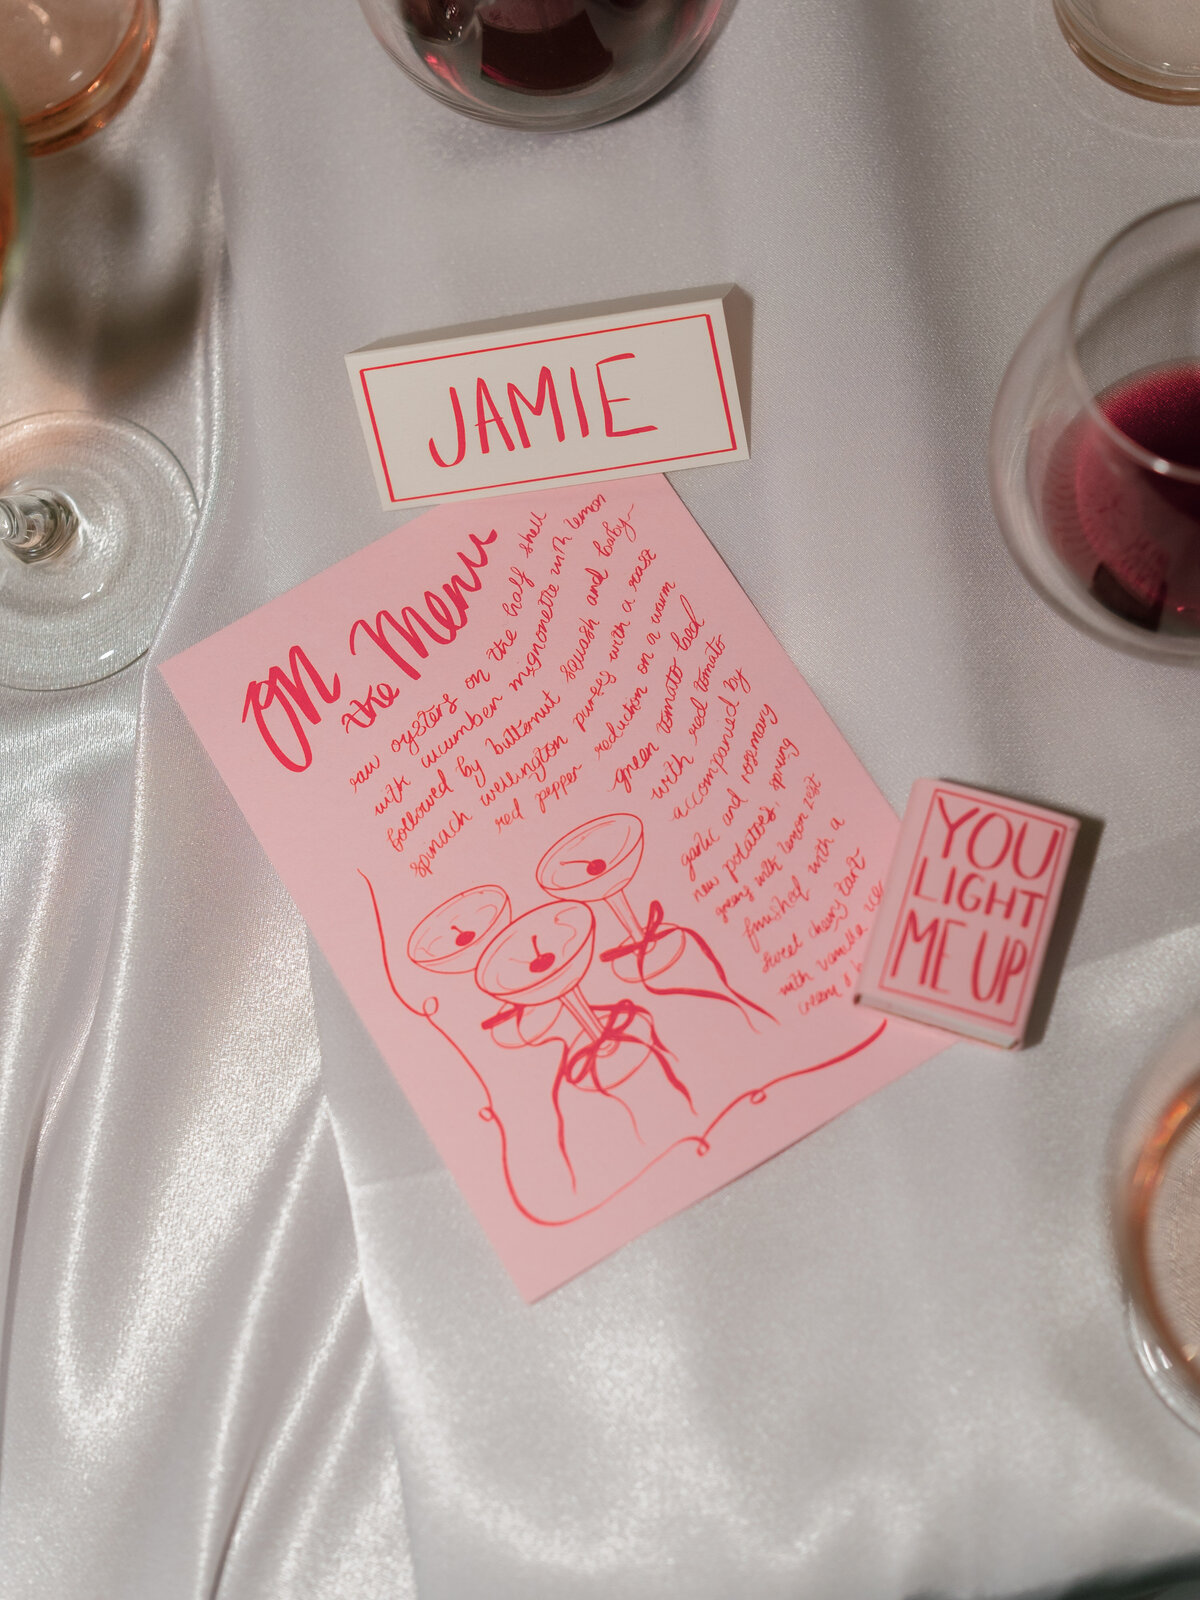 JAMIE
ON
the Menu
raw oysters on the half shell
with cucumber mignonette with lemon
followed by butternut squash and baby
spinach wellington purees with a roast
red pepper reduction on a warm
green tomato bed
with red tomato
accompanied by
garlic and rosemary
new potatoes, spring
greens with lemon zest
finished with a
sweet cherry tart
with vanilla ice
cream
YOU
LIGHT
ME UP